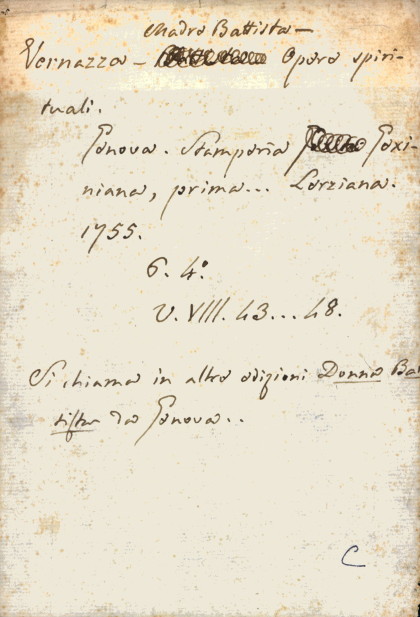 Madre Battista —
Vernazza — Opere spiri-
tuali.
Genova. Stamperia Gexi-
niana, prima... Lerziana.
1755.
6. 4.º
V. VIII. 43... 48.
Si chiama in altre edizioni Donna Bat
tista da Genova..
C